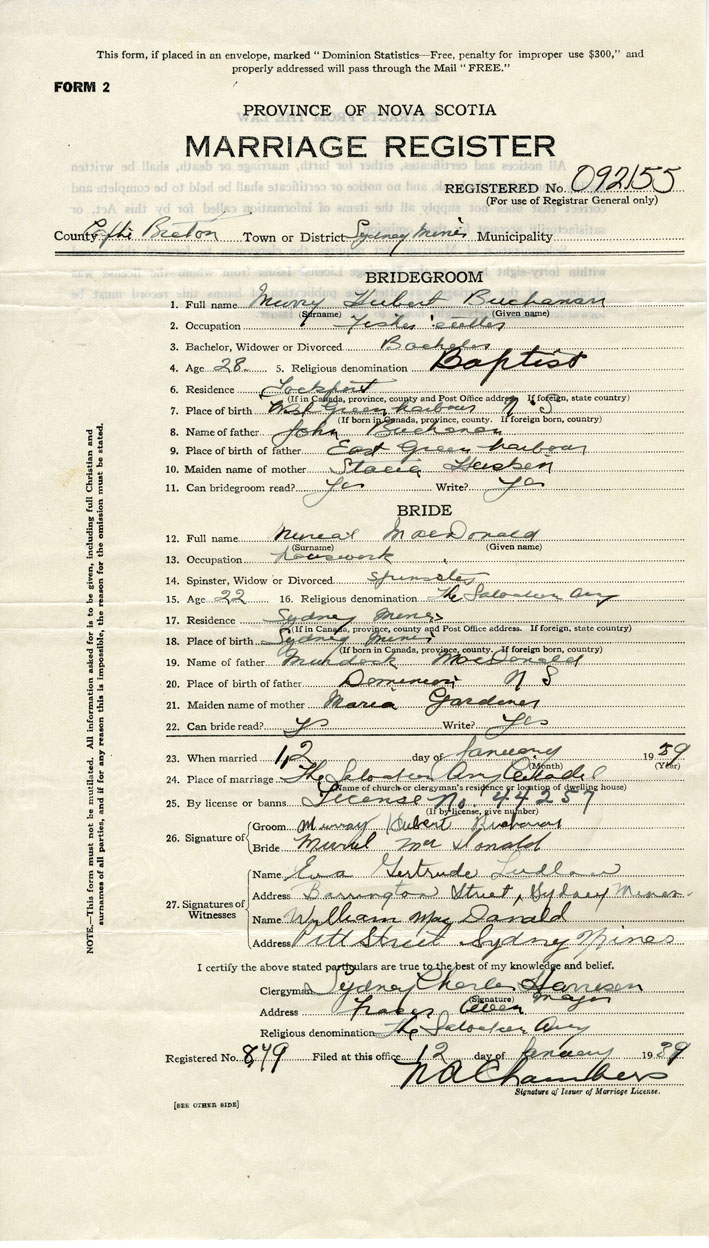 This form, if placed in an envelope, marked "Dominion Statistics—Free, penalty for improper use $300," and
properly addressed will pass through the Mail "FREE."
FORM 2
PROVINCE OF NOVA SCOTIA
MARRIAGE REGISTER
REGISTERED No. 092155
(For use of Registrar General only)
County Breton Town or District Sydney Mines Municipality
BRIDEGROOM
1. Full name Hubert Buchanan
(Surname) (Given name)
2. Occupation
3. Bachelor, Widower or Divorced Bachelor
4. Age 28 5. Religious denomination Baptist
6. Residence Lockport
(If in Canada, province, county and Post Office address. If foreign, state country)
7. Place of birth West Green harbour N.S
(If born in Canada, province, county. If foreign born, country)
8. Name of father John Buchanan
9. Place of birth of father East Green harbour
10. Maiden name of mother Stacia
11. Can bridegroom read? Yes Write? Yes
BRIDE
12. Full name MacDonald
(Surname) (Given name)
13. Occupation housework
14. Spinster, Widow or Divorced spinster
15. Age 22 16. Religious denomination The Salvation Army
17. Residence Sydney Mines
(If in Canada, province, county and Post Office address. If foreign, state country)
18. Place of birth Sydney Mines
(If born in Canada, province, county. If foreign born, country)
19. Name of father Murdock MacDonald
20. Place of birth of father Dominion N S
21. Maiden name of mother Maria Gardener
22. Can bride read? Yes Write? Yes
23. When married 12 day of January 1939
(Month) (Year)
24. Place of marriage The Salvation Army Citadel
(Name of church or clergyman's residence or location of dwelling house)
25. By license or banns License No. 44257
(If by license, give number)
26. Signature of
Groom Murray Hubert Buchanan
Bride Muriel MacDonald
27. Signatures of Witnesses
Name Eva Gertrude Ludlow
Address Barrington Street, Sydney Mines.
Name William MacDonald
Address Pitt Street Sydney Mines
I certify the above stated particulars are true to the best of my knowledge and belief.
Clergyman Sydney Charles Harrison
(Signature) Major
Address Fraser
Religious denomination The Salvation Army
Registered No. 849 Filed at this office 12 day of January 1939
N A Chambers
Signature of Issuer of Marriage License.
[SEE OTHER SIDE]
NOTE.—This form must not be mutilated. All information asked for is to be given, including full Christian and
surnames of all parties, and if for any reason this is impossible, the reason for the omission must be stated.